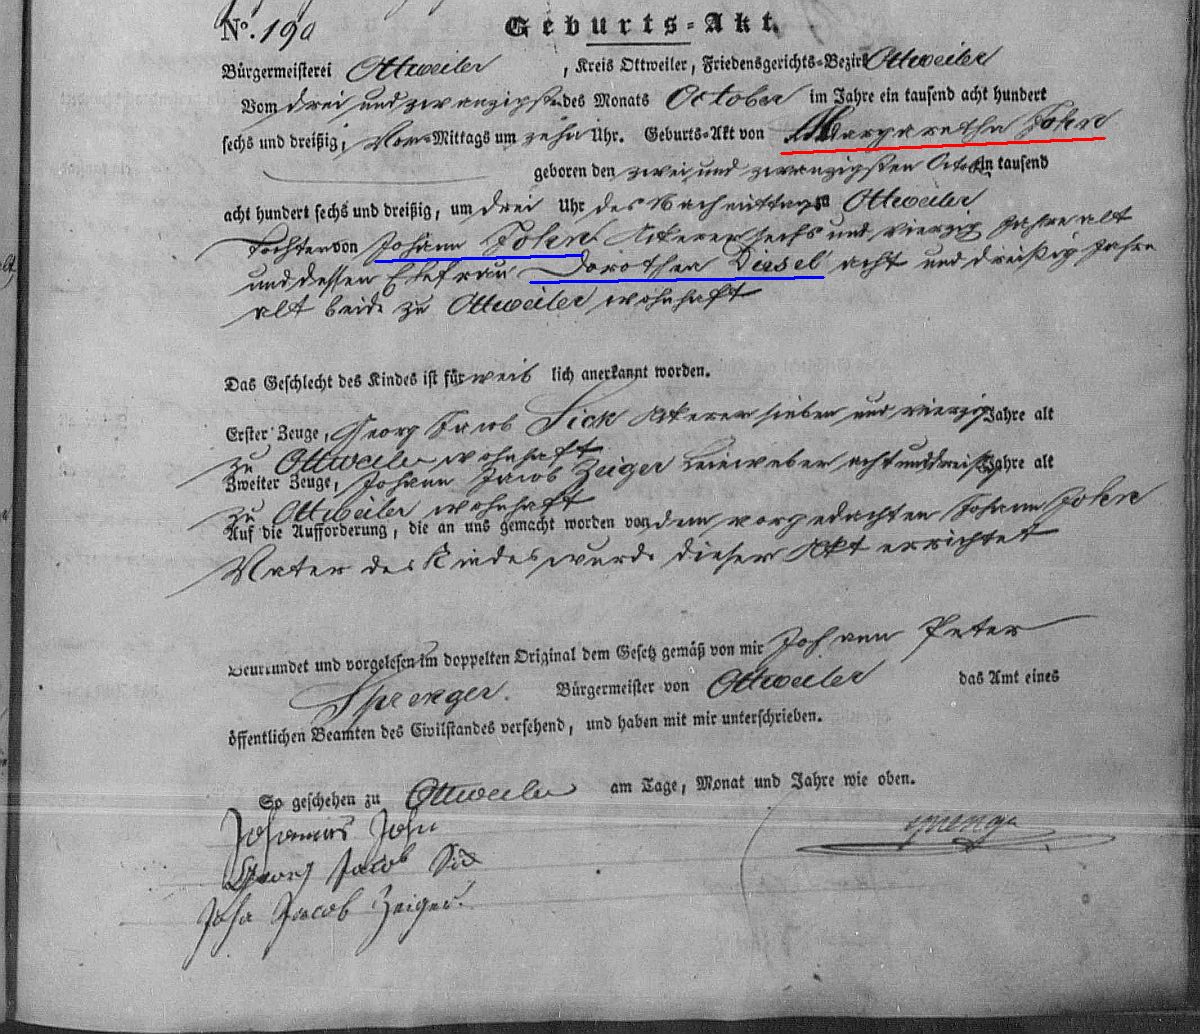 No. 190 Geburts-Akt.
Bürgermeisterei Ottweiler, Kreis Ottweiler, Friedensgerichts-Bezirk Ottweiler
Vom drei und zwanzigsten des Monats October im Jahre ein tausend acht hundert
sechs und dreißig, Vor-Mittags um zehn Uhr. Geburts-Akt von Margaretha John
geboren den zwei und zwanzigsten Octob. ein tausend
acht hundert sechs und dreißig, um drei Uhr des Nachmittags zu Ottweiler
Tochter von Johann John Ackerer sechs und vierzig Jahre alt
und dessen Ehefrau Dorothea Diesel acht und dreißig Jahre
alt beide zu Ottweiler wohnhaft
Das Geschlecht des Kindes ist für weib lich anerkannt worden.
Erster Zeuge, Georg Jacob Sick Ackerer sieben und vierzig Jahre alt
zu Ottweiler wohnhaft
Zweiter Zeuge, Johann Jacob Zeiger Leineweber acht und dreißig Jahre alt
zu Ottweiler wohnhaft
Auf die Aufforderung, die an uns gemacht worden von dem vorgedachten Johann John
Vater des Kindes wurde dieser Akt errichtet
Beurkundet und vorgelesen im doppelten Original dem Gesetz gemäß von mir Johann Peter
Sprenger. Bürgermeister von Ottweiler das Amt eines
öffentlichen Beamten des Civilstandes versehend, und haben mit mir unterschrieben.
So geschehen zu Ottweiler am Tage, Monat und Jahre wie oben.
Johannes John
Sprenger
Georg Jacob Sick
Joha Jacob Zeiger.